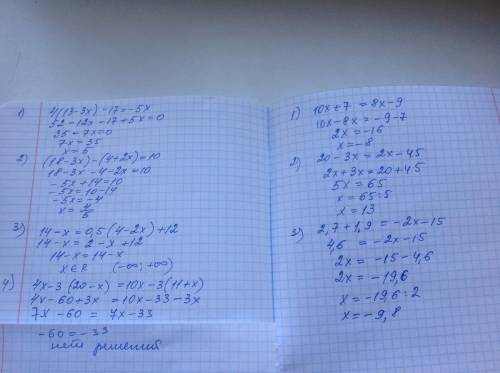 1) 4(13-3x)-17=-5x
52-12x-17+5x=0
35-7x=0
7x=35
x=5
2) (18-3x)-(4+2x)=10
18-3x-4-2x=10
-5x+14=10
-5x=10-14
-5x=-4
x=4/5
3) 14-x=0,5(4-2x)+12
14-x=2-x+12
14-x=14-x
x∈R (-∞;+∞)
4) 4x-3(20-x)=10x-3(11+x)
4x-60+3x=10x-33-3x
7x-60=7x-33
-60=-33
нет решений
1) 10x+7=8x-9
10x-8x=-9-7
2x=-16
x=-8
2) 20-3x=2x-45
2x+3x=20+45
5x=65
x=65:5
x=13
3) 2,7+1,9=-2x-15
4,6=-2x-15
2x=-15-4,6
2x=-19,6
x=-19,6:2
x=-9,8